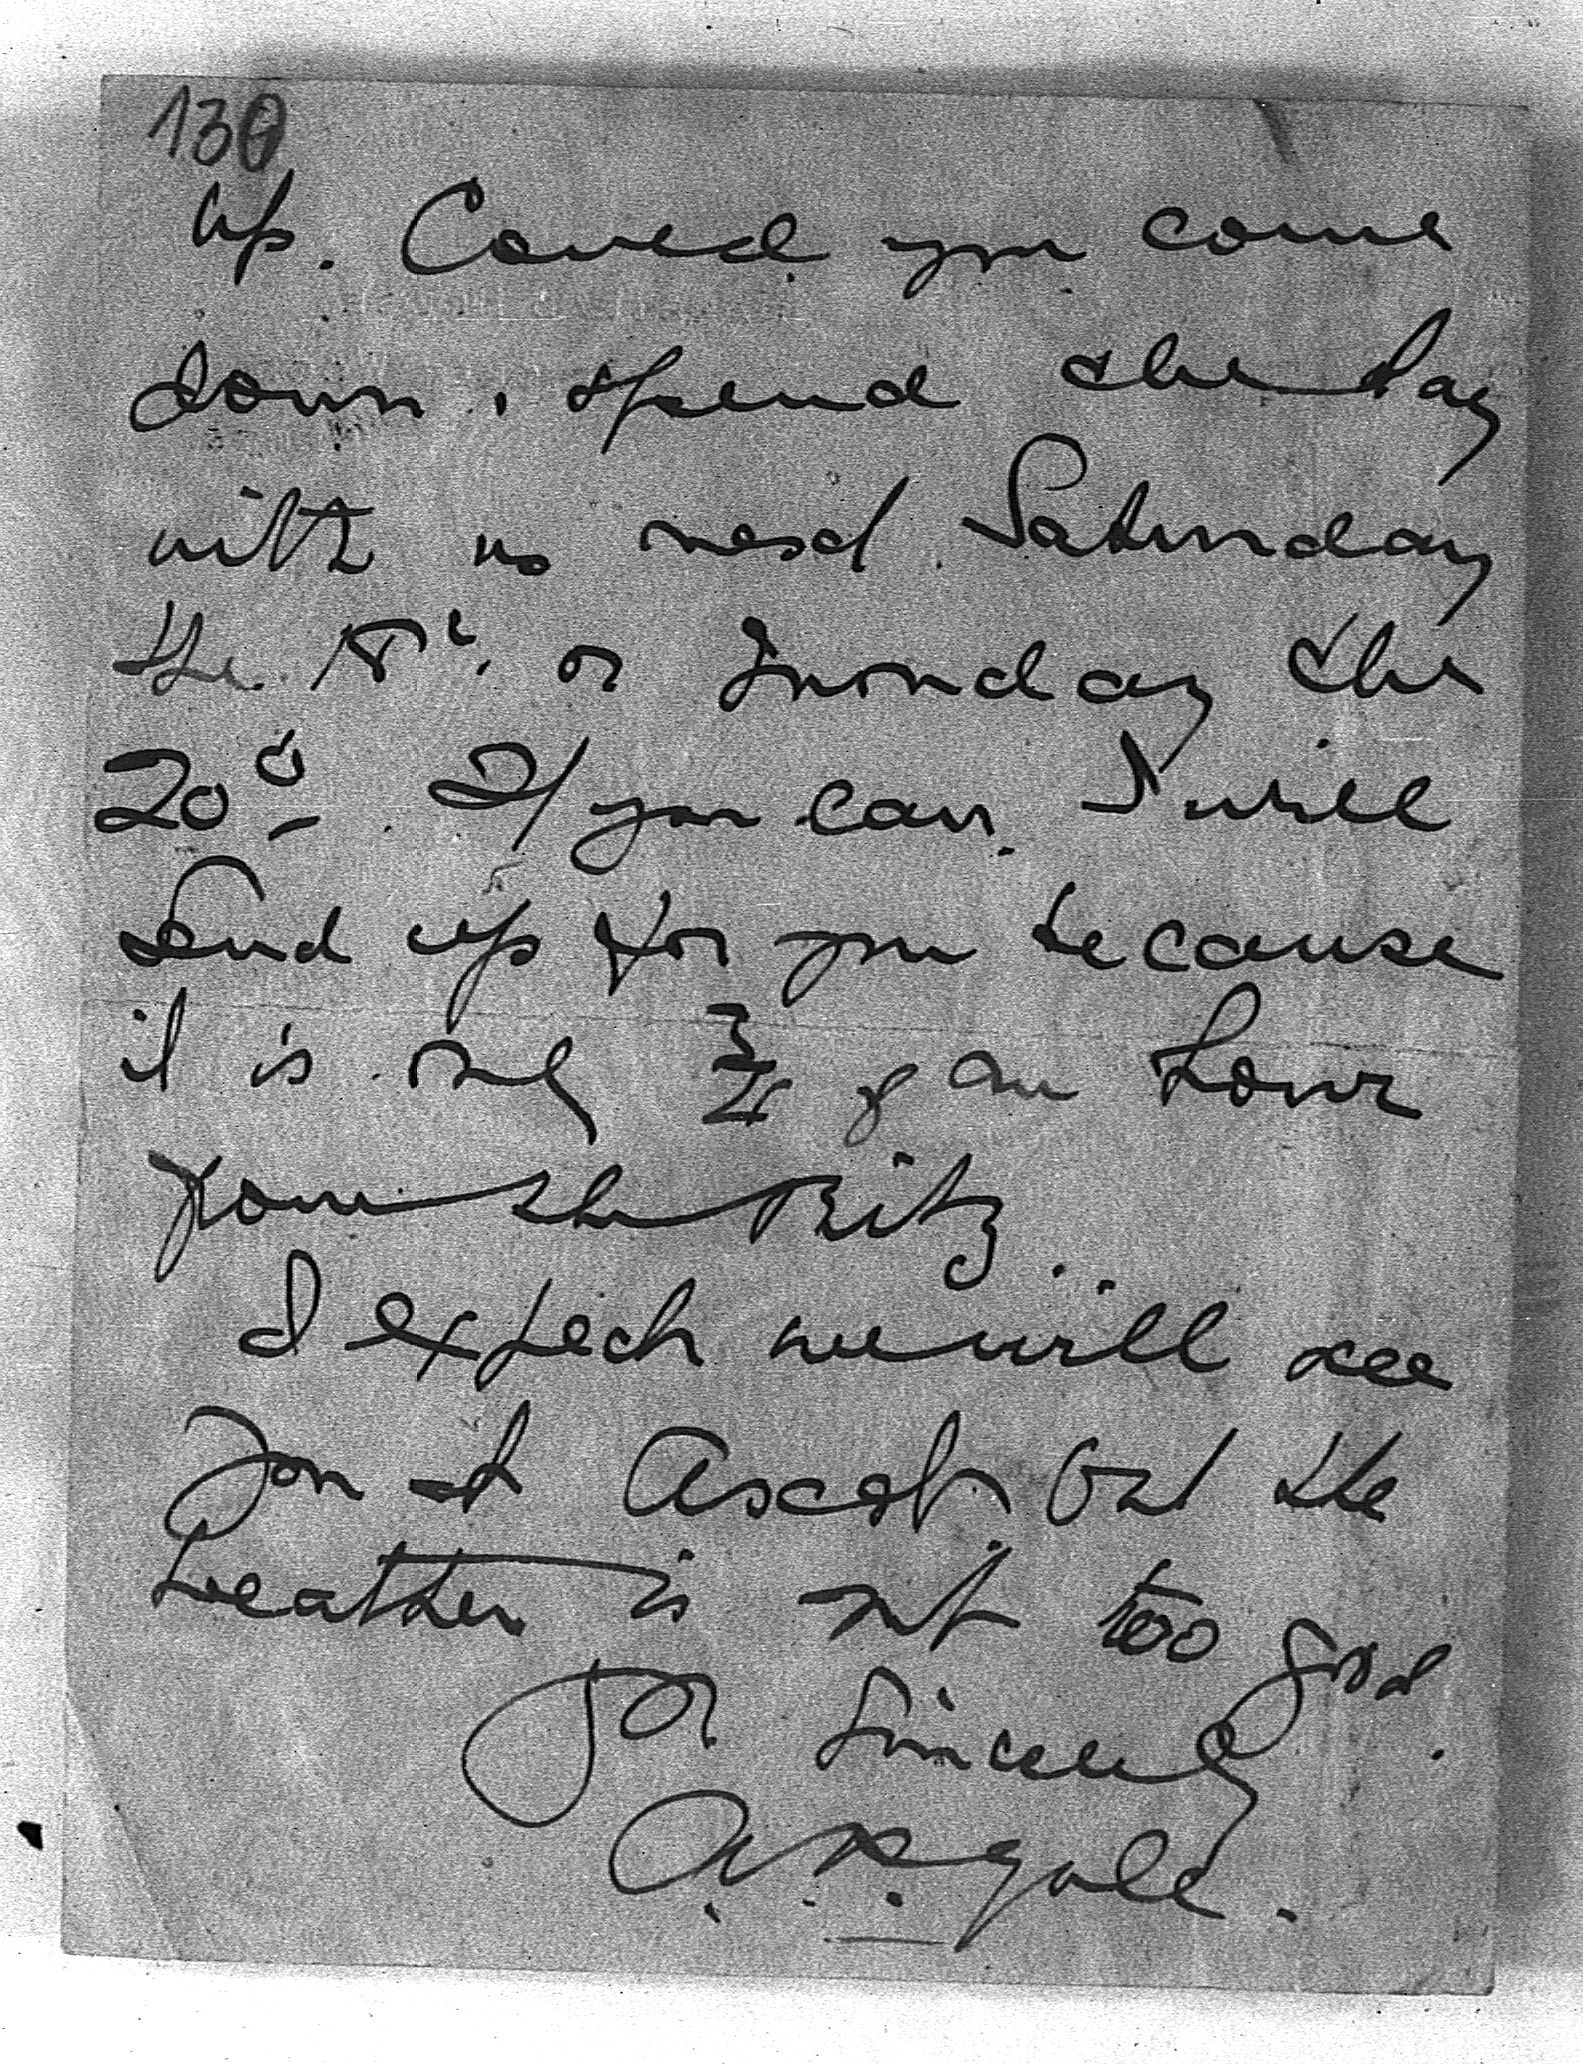 130
up. Could you come
down, spend the day
with us next Saturday
the 18th or Monday the
20th. If you can I will
send up for you because
it is only 3/4 of an hour
from the Ritz.
I expect we will see
you at Ascot, but the
weather is not too good.
Yrs Sincerely
A.